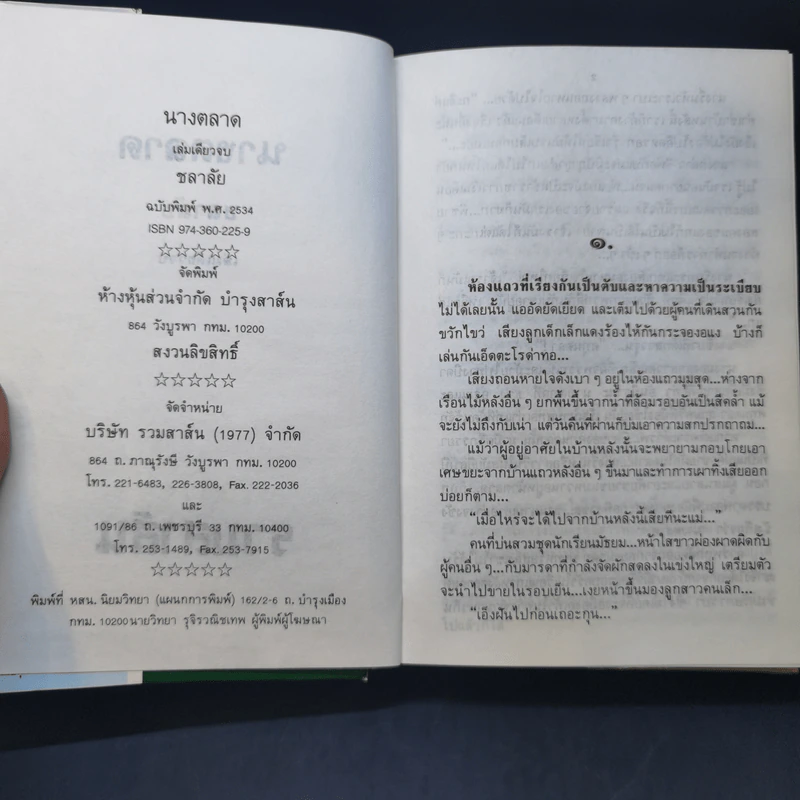 นางตลาด
เล่มเดียวจบ
ชลาลัย
ฉบับพิมพ์ พ.ศ. 2534
ISBN 974-360-225-9
☆☆☆☆☆
จัดพิมพ์
ห้างหุ้นส่วนจำกัด บำรุงสาส์น
864 วังบูรพา กทม. 10200
สงวนลิขสิทธิ์
☆☆☆☆☆
จัดจำหน่าย
บริษัท รวมสาส์น (1977) จำกัด
864 ถ.ภาณุรังษี วังบูรพา กทม. 10200
โทร. 221-6483, 226-3808, Fax. 222-2036
และ
1091/86 ถ.เพชรบุรี 33 กทม. 10400
โทร. 253-1489, Fax. 253-7915
☆☆☆☆☆
พิมพ์ที่ หสน. นิยมวิทยา (แผนกการพิมพ์) 162/2-6 ถ.บำรุงเมือง
กทม. 10200 นายวิทยา รุจิรวณิชเทพ ผู้พิมพ์ผู้โฆษณา
๑.
ห้องแถวที่เรียงกันเป็นตับและหาความเป็นระเบียบ
ไม่ได้เลยนั้น แออัดยัดเยียด และเต็มไปด้วยผู้คนที่เดินสวนกัน
ขวักไขว่ เสียงลูกเด็กเล็กแดงร้องไห้กันกระจองอแง บ้างก็
เล่นกันเอ็ดตะโรด่าทอ...
เสียงถอนหายใจดังเบา ๆ อยู่ในห้องแถวมุมสุด...ห่างจาก
เรือนไม้หลังอื่น ๆ ยกพื้นขึ้นจากน้ำที่ล้อมรอบอันเป็นสีคล้ำ แม้
จะยังไม่ถึงกับเน่า แต่วันคืนที่ผ่านก็บ่มเอาความสกปรกถาถม...
แม้ว่าผู้อยู่อาศัยในบ้านหลังนั้นจะพยายามกอบโกยเอา
เศษขยะจากบ้านแถวหลังอื่น ๆ ขึ้นมาและทำการเผาทิ้งเสียออก
บ่อยก็ตาม...
“เมื่อไหร่จะได้ไปจากบ้านหลังนี้เสียทีนะแม่...”
คนที่บ่นสวมชุดนักเรียนมัธยม...หน้าใสขาวผ่องผาดผิดกับ
ผู้คนอื่น ๆ...กับมารดาที่กำลังจัดผักสดลงในเข่งใหญ่ เตรียมตัว
จะนำไปขายในรอบเย็น...เงยหน้าขึ้นมองลูกสาวคนเล็ก...
“เอ็งฝันไปก่อนเถอะกุน...